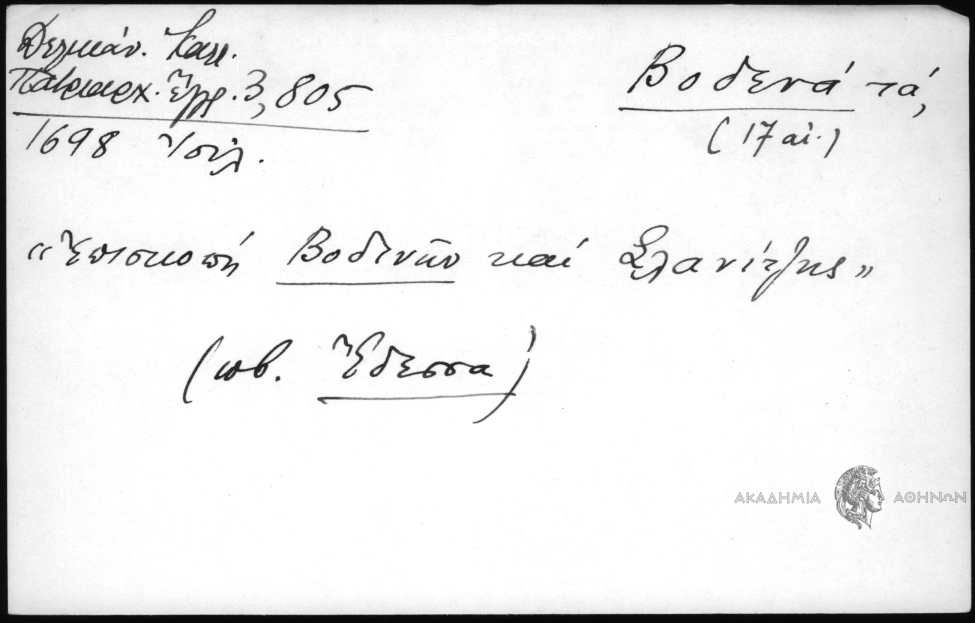 Δελικάν. Καλλ.
Πατριαρχ. Ἔγγρ. 3, 805
1698
Βοδενά τά,
(17 αἰ.)
«Ἐπισκοπή Βοδενῶν καί Σλανίτζης»
(πβ. Ἔδεσσα)
ΑΚΑΔΗΜΙΑ ΑΘΗΝΩΝ